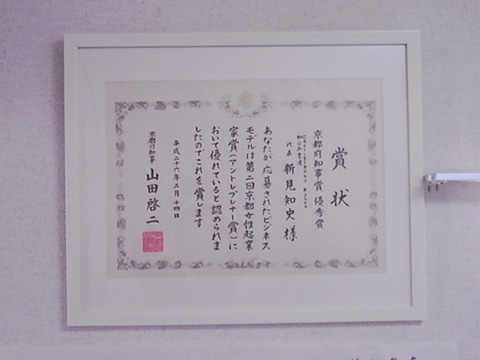 賞状
京都府知事賞 優秀賞
代表 新見知史様
あなたが応募されたビジネス
モデルは第二回京都女性起業
家賞(アントレプレナー賞)に
おいて優れていると認められま
したのでこれを賞します
平成二十六年三月十四日
京都府知事 山田啓二